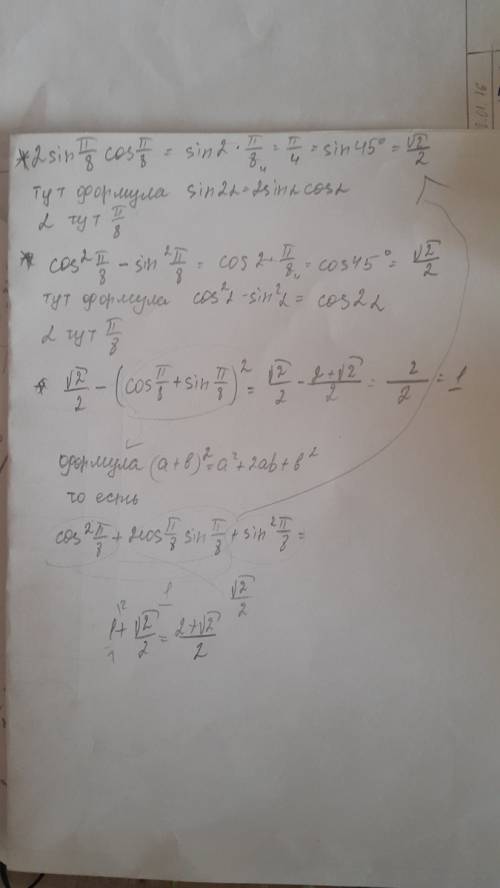 * 2 sin π/8 cos π/8 = sin 2 · π/8₄ = π/4 = sin 45° = √2/2
тут формула sin2α = 2sinα cosα
α тут π/8
* cos² π/8 - sin² π/8 = cos 2 · π/8₄ = cos 45° = √2/2
тут формула cos²α - sin²α = cos 2α
α тут π/8
* √2/2 - (cos π/8 + sin π/8)² = √2/2 - 2+√2/2 = 2/2 = 1
формула (a+b)² = a² + 2ab + b²
то есть
cos² π/8 + 2cos π/8 sin π/8 + sin² π/8 =
1 √2/2
1 + √2/2 = 2+√2/2